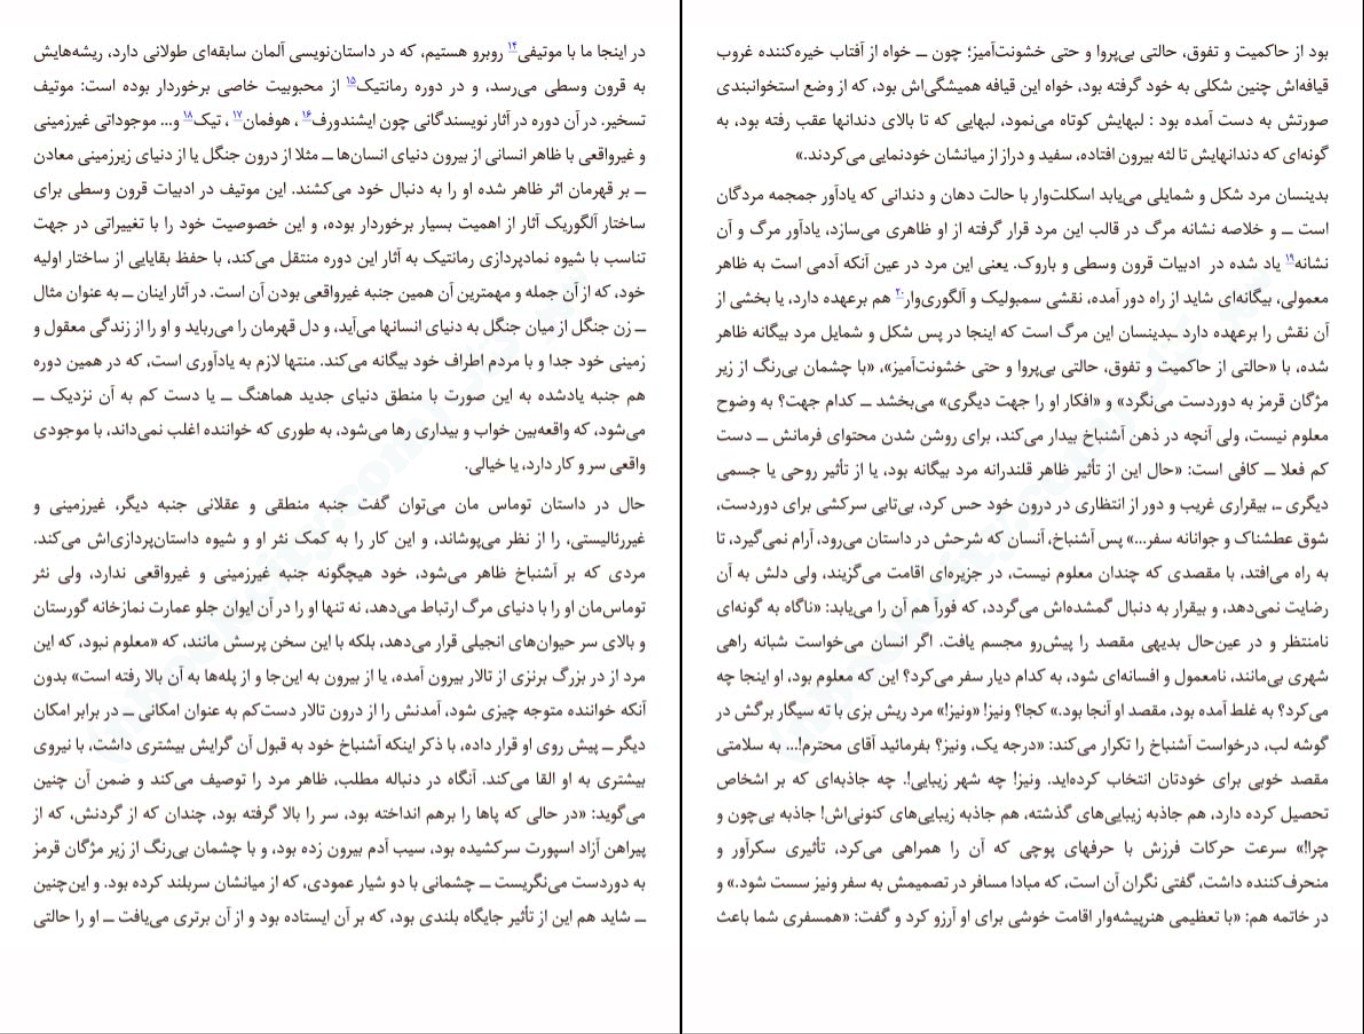 در اینجا ما با موتیفی۱۴ روبرو هستیم، که در داستان‌نویسی آلمان سابقه‌ای طولانی دارد، ریشه‌هایش
به قرون وسطی می‌رسد، و در دوره رمانتیک۱۵ از محبوبیت خاصی برخوردار بوده است: موتیف
تسخیر. در آن دوره در آثار نویسندگانی چون ایشندورف۱۶ ، هوفمان۱۷ ، تیک۱۸ و... موجوداتی غیرزمینی
و غیرواقعی با ظاهر انسانی از بیرون دنیای انسان‌ها ــ مثلا از درون جنگل یا از دنیای زیرزمینی معادن
ــ بر قهرمان اثر ظاهر شده او را به دنبال خود می‌کشند. این موتیف در ادبیات قرون وسطی برای
ساختار آلگوریک آثار از اهمیت بسیار برخوردار بوده، و این خصوصیت خود را با تغییراتی در جهت
تناسب با شیوه نمادپردازی رمانتیک به آثار این دوره منتقل می‌کند، با حفظ بقایایی از ساختار اولیه
خود، که از آن جمله و مهمترین آن همین جنبه غیرواقعی بودن آن است. در آثار اینان ــ به عنوان مثال
ــ زن جنگل از میان جنگل به دنیای انسانها می‌آید، و دل قهرمان را می‌رباید و او را از زندگی معقول و
زمینی خود جدا و با مردم اطراف خود بیگانه می‌کند. منتها لازم به یادآوری است، که در همین دوره
هم جنبه یادشده به این صورت با منطق دنیای جدید هماهنگ ــ یا دست کم به آن نزدیک ــ
می‌شود، که واقعه‌بین خواب و بیداری رها می‌شود، به طوری که خواننده اغلب نمی‌داند، با موجودی
واقعی سر و کار دارد، یا خیالی.
حال در داستان توماس مان می‌توان گفت جنبه منطقی و عقلانی جنبه دیگر، غیرزمینی و
غیررئالیستی، را از نظر می‌پوشاند، و این کار را به کمک نثر او و شیوه داستان‌پردازی‌اش می‌کند.
مردی که بر آشنباخ ظاهر می‌شود، خود هیچگونه جنبه غیرزمینی و غیرواقعی ندارد، ولی نثر
توماس‌مان او را با دنیای مرگ ارتباط می‌دهد، نه تنها او را در آن ایوان جلو عمارت نمازخانه گورستان
و بالای سر حیوان‌های انجیلی قرار می‌دهد، بلکه با این سخن پرسش مانند، که «معلوم نبود، که این
مرد از در بزرگ برنزی از تالار بیرون آمده، یا از بیرون به این‌جا و از پله‌ها به آن بالا رفته است» بدون
آنکه خواننده متوجه چیزی شود، آمدنش را از درون تالار دست‌کم به عنوان امکانی ــ در برابر امکان
دیگر ــ پیش روی او قرار داده، با ذکر اینکه آشنباخ خود به قبول آن گرایش بیشتری داشت، با نیروی
بیشتری به او القا می‌کند. آنگاه در دنباله مطلب، ظاهر مرد را توصیف می‌کند و ضمن آن چنین
می‌گوید: «در حالی که پاها را برهم انداخته بود، سر را بالا گرفته بود، چندان که از گردنش، که از
پیراهن آزاد اسپورت سرکشیده بود، سیب آدم بیرون زده بود، و با چشمان بی‌رنگ از زیر مژگان قرمز
به دوردست می‌نگریست ــ چشمانی با دو شیار عمودی، که از میانشان سربلند کرده بود. و این‌چنین
ــ شاید هم این از تأثیر جایگاه بلندی بود، که بر آن ایستاده بود و از آن برتری می‌یافت ــ او را حالتی
بود از حاکمیت و تفوق، حالتی بی‌پروا و حتی خشونت‌آمیز؛ چون ــ خواه از آفتاب خیره‌کننده غروب
قیافه‌اش چنین شکلی به خود گرفته بود، خواه این قیافه همیشگی‌اش بود، که از وضع استخوانبندی
صورتش به دست آمده بود : لبهایش کوتاه می‌نمود، لبهایی که تا بالای دندانها عقب رفته بود، به
گونه‌ای که دندانهایش تا لثه بیرون افتاده، سفید و دراز از میانشان خودنمایی می‌کردند.»
بدینسان مرد شکل و شمایلی می‌یابد اسکلت‌وار با حالت دهان و دندانی که یادآور جمجمه مردگان
است ــ و خلاصه نشانه مرگ در قالب این مرد قرار گرفته از او ظاهری می‌سازد، یادآور مرگ و آن
نشانه۱۹ یاد شده در ادبیات قرون وسطی و باروک. یعنی این مرد در عین آنکه آدمی است به ظاهر
معمولی، بیگانه‌ای شاید از راه دور آمده، نقشی سمبولیک و آلگوری‌وار۲۰ هم برعهده دارد، یا بخشی از
آن نقش را برعهده دارد ـبدینسان این مرگ است که اینجا در پس شکل و شمایل مرد بیگانه ظاهر
شده، با «حالتی از حاکمیت و تفوق، حالتی بی‌پروا و حتی خشونت‌آمیز»، «با چشمان بی‌رنگ از زیر
مژگان قرمز به دوردست می‌نگرد» و «افکار او را جهت دیگری» می‌بخشد ــ کدام جهت؟ به وضوح
معلوم نیست، ولی آنچه در ذهن آشنباخ بیدار می‌کند، برای روشن شدن محتوای فرمانش ــ دست
کم فعلا ــ کافی است: «حال این از تأثیر ظاهر قلندرانه مرد بیگانه بود، یا از تأثیر روحی یا جسمی
دیگری ــ، بیقراری غریب و دور از انتظاری در درون خود حس کرد، بی‌تابی سرکشی برای دوردست،
شوق عطشناک و جوانانه سفر...» پس آشنباخ، آنسان که شرحش در داستان می‌رود، آرام نمی‌گیرد، تا
به راه می‌افتد، با مقصدی که چندان معلوم نیست، در جزیره‌ای اقامت می‌گزیند، ولی دلش به آن
رضایت نمی‌دهد، و بیقرار به دنبال گمشده‌اش می‌گردد، که فوراً هم آن را می‌یابد: «ناگاه به گونه‌ای
نامنتظر و در عین‌حال بدیهی مقصد را پیش‌رو مجسم یافت. اگر انسان می‌خواست شبانه راهی
شهری بی‌مانند، نامعمول و افسانه‌ای شود، به کدام دیار سفر می‌کرد؟ این که معلوم بود، او اینجا چه
می‌کرد؟ به غلط آمده بود، مقصد او آنجا بود.» کجا؟ ونیز! «ونیز!» مرد ریش بزی با ته سیگار برگش در
گوشه لب، درخواست آشنباخ را تکرار می‌کند: «درجه یک، ونیز؟ بفرمائید آقای محترم!... به سلامتی
مقصد خوبی برای خودتان انتخاب کرده‌اید. ونیز! چه شهر زیبایی!. چه جاذبه‌ای که بر اشخاص
تحصیل کرده دارد، هم جاذبه زیبایی‌های گذشته، هم جاذبه زیبایی‌های کنونی‌اش! جاذبه بی‌چون و
چرا!» سرعت حرکات فرزش با حرفهای پوچی که آن را همراهی می‌کرد، تأثیری سکرآور و
منحرف‌کننده داشت، گفتی نگران آن است، که مبادا مسافر در تصمیمش به سفر ونیز سست شود.» و
در خاتمه هم: «با تعظیمی هنرپیشه‌وار اقامت خوشی برای او آرزو کرد و گفت: «همسفری شما باعث